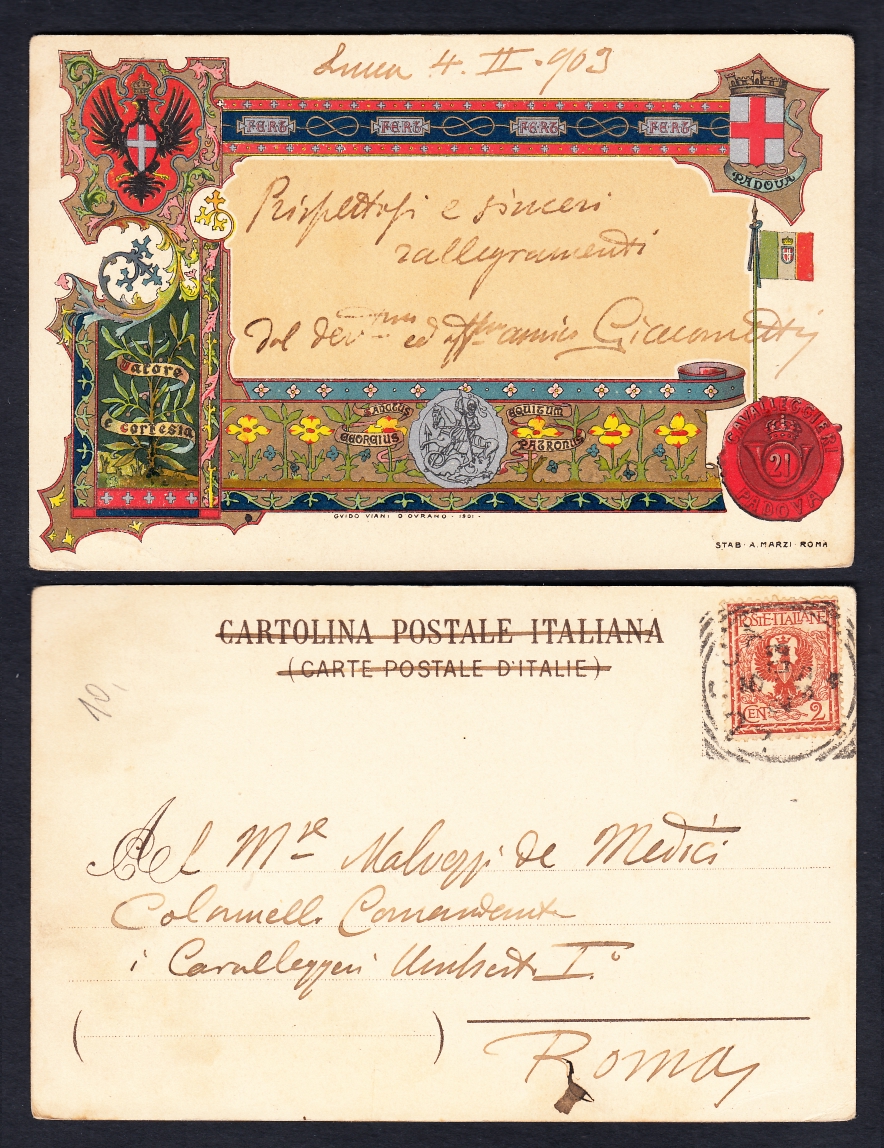 Lucca 4. II. 903
FERT FERT FERT FERT
PADOVA
Rispettosi e sinceri
rallegramenti
dal dev.mo ed aff.mo amico Giacometti
Valore
e cortesia
SANCTUS
GEORGIUS
EQUITUM
PATRONUS
CAVALLEGGIERI
21
PADOVA
GVIDO VIANI D'OVRANO · 1901 ·
STAB · A. MARZI · ROMA
CARTOLINA POSTALE ITALIANA
(CARTE POSTALE D'ITALIE)
POSTE·ITALIANE
CEN. 2
10,
Al M.se Malvezzi de Medici
Colonnello Comandante
i Cavalleggeri Umberto I.º
Roma